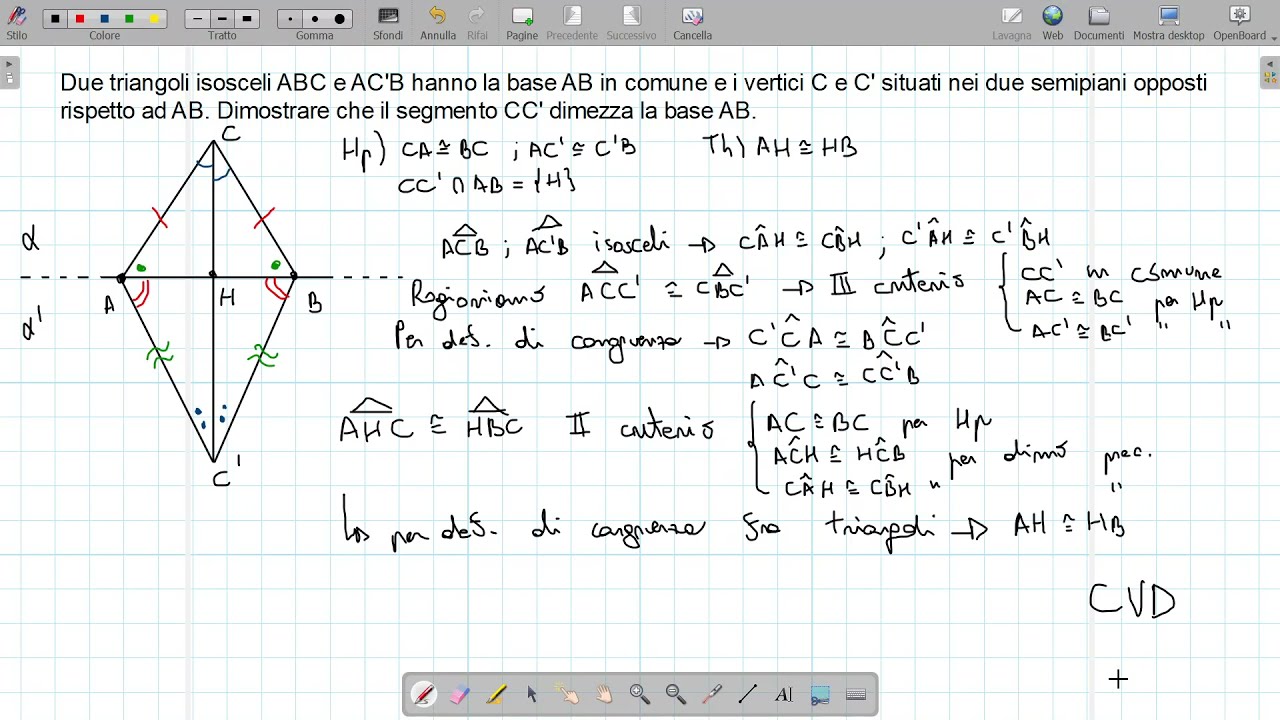 Stilo Colore Tratto Gomma Sfondi Annulla Rifai Pagine Precedente Successivo Cancella Lavagna Web Documenti Mostra desktop OpenBoard
Due triangoli isosceli ABC e AC'B hanno la base AB in comune e i vertici C e C' situati nei due semipiani opposti
rispetto ad AB. Dimostrare che il segmento CC' dimezza la base AB.
C
Hp) CA ≅ BC ; AC' ≅ C'B Th) AH ≅ HB
CC' ∩ AB = {H}
α
ACB ; AC'B isosceli → CÂH ≅ CB̂H ; C'ÂH ≅ C'B̂H
A H B
α'
Ragioniamo ACC' ≅ CBC' → III criterio
CC' in comune
AC ≅ BC per Hp
AC' ≅ BC' " "
Per def. di congruenza → C'ĈA ≅ BĈC'
AĈ'C ≅ CĈ'B
C'
AHC ≅ HBC II criterio
AC ≅ BC per Hp
AĈH ≅ HĈB per dimo prec.
CÂH ≅ CB̂H " "
↳ per def. di congruenza fra triangoli → AH ≅ HB
CVD